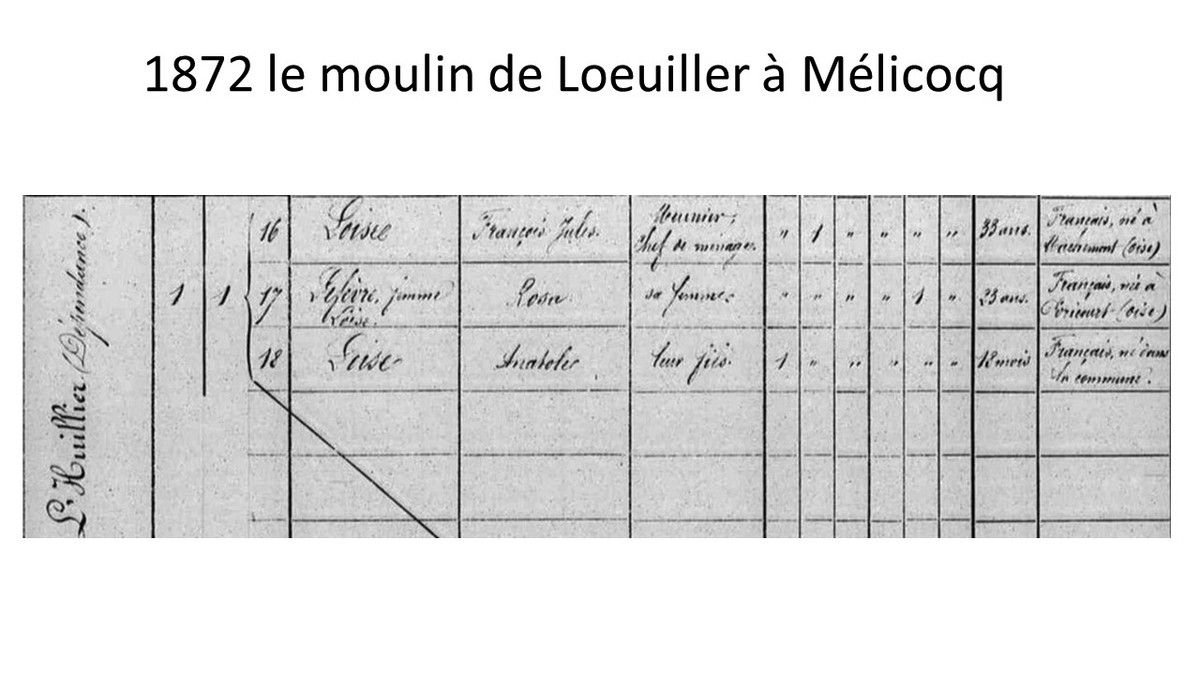 1872 le moulin de Loeuiller à Mélicocq
L'Huillier (Dépendance).
1 1
16 Loisel François Jules. Meunier, Chef de ménage. " 1 " " " " 33 ans. Français, né à (oise)
17 Lefèvre, femme Loise. Rosa sa femme. " " " " 1 " 23 ans. Français, né à (oise)
18 Loise Anatole leur fils. 1 " " " " " 18 mois Français, né dans la commune.